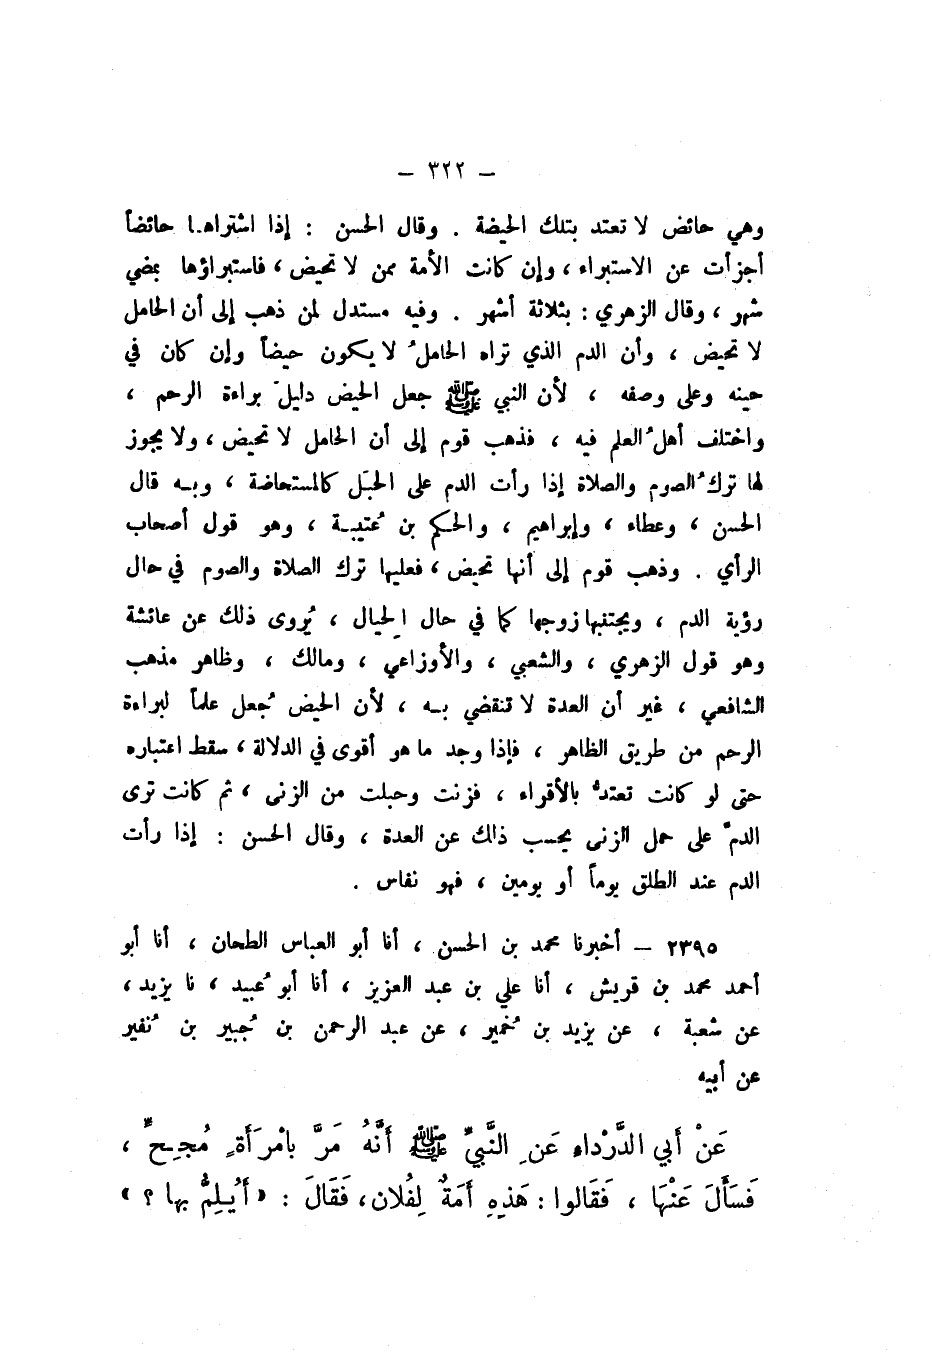 — ٣٢٢ —
وهي حائض لا تعتد بتلك الحيضة . وقال الحسن : إذا اشتراها حائضاً
أجزأت عن الاستبراء ، وإن كانت الأمة ممن لا تحيض ، فاستبراؤها بمضي
شهر ، وقال الزهري : بثلاثة أشهر . وفيه مستدل لمن ذهب إلى أن الحامل
لا تحيض ، وأن الدم الذي تراه الحاملُ لا يكون حيضاً وإن كان في
حينه وعلى وصفه ، لأن النبي ﷺ جعل الحيض دليلَ براءة الرحم ،
واختلف أهلُ العلم فيه ، فذهب قوم إلى أن الحامل لا تحيض ، ولا يجوز
لها تركُ الصوم والصلاة إذا رأت الدم على الحبَل كالمستحاضة ، وبه قال
الحسن ، وعطاء ، وإبراهيم ، والحكم بن عُتيبة ، وهو قول أصحاب
الرأي . وذهب قوم إلى أنها تحيض ، فعليها ترك الصلاة والصوم في حال
رؤية الدم ، ويجتنبها زوجها كما في حال الحِيال ، يُروى ذلك عن عائشة
وهو قول الزهري ، والشعبي ، والأوزاعي ، ومالك ، وظاهر مذهب
الشافعي ، غير أن العدة لا تنقضي به ، لأن الحيض جُعل علماً لبراءة
الرحم من طريق الظاهر ، فإذا وجد ما هو أقوى في الدلالة ، سقط اعتباره
حتى لو كانت تعتدُّ بالأقراء ، فزنت وحبلت من الزنى ، ثم كانت ترى
الدمَ على حمل الزنى يحسب ذلك عن العدة ، وقال الحسن : إذا رأت
الدم عند الطلق يوماً أو يومين ، فهو نفاس .
٢٣٩٥ — أخبرنا محمد بن الحسن ، أنا أبو العباس الطحان ، أنا أبو
أحمد محمد بن قريش ، أنا علي بن عبد العزيز ، أنا أبو عُبيد ، نا يزيد ،
عن شعبة ، عن يزيد بن خُمير ، عن عبد الرحمن بن جُبير بن نُفير
عن أبيه
عَنْ أَبي الدَّرْداء عَنِ النَّبيِّ ﷺ أَنَّهُ مَرَّ بامْرَأَةٍ مُجِحٍّ ،
فَسَأَلَ عَنْهَا ، فَقَالوا : هَذِهِ أَمَةٌ لِفُلان ، فَقَالَ : « أَيُلِمُّ بها ؟ »